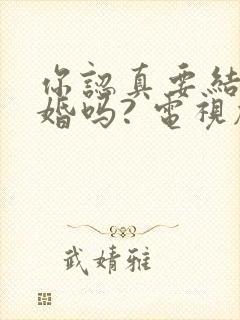 你認真要結
婚吗? 電視
武婧雅